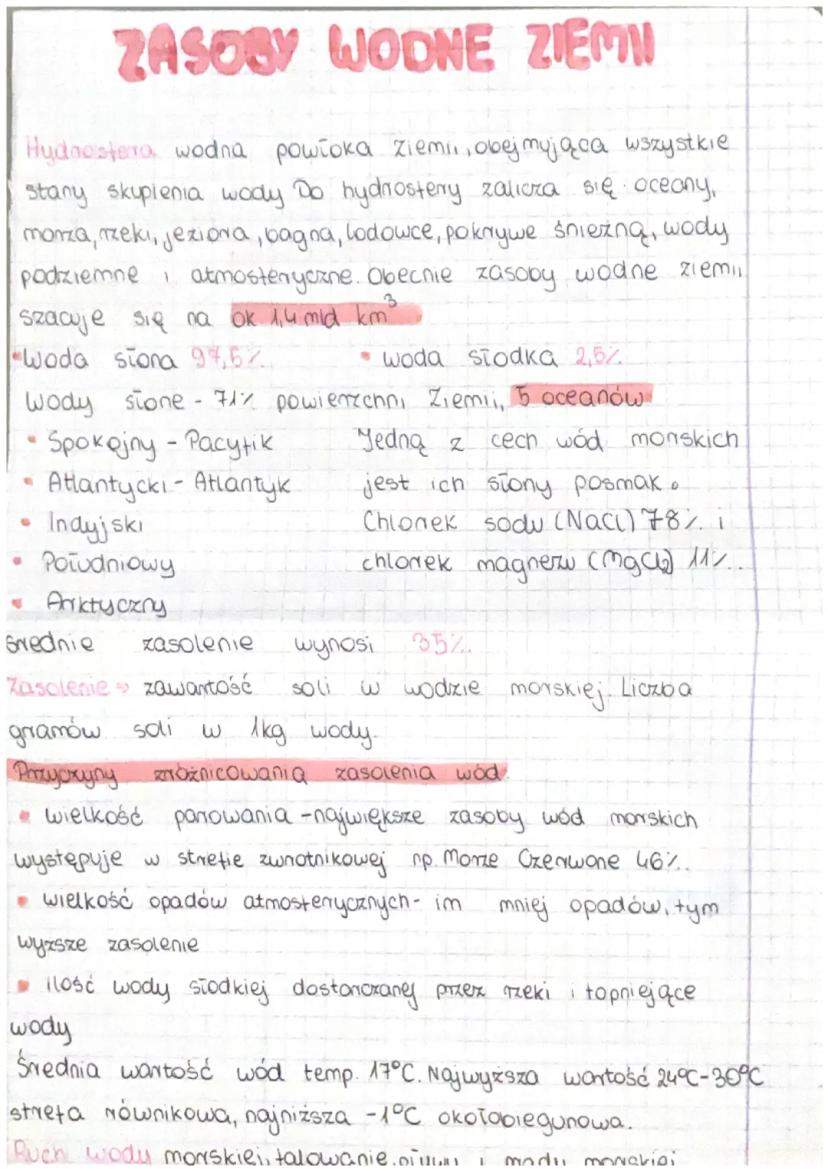 ZASOBY WODNE ZIEMII
Hydrosfera wodna powłoka ziemi, obejmująca wszystkie
stany skupienia wody Do hydrosfery zalicza się oceany,
morza, rzeki, jeziora, bagna, lodowce, pokrywe śnieżną, wody
podziemne i atmosferyczne. Obecnie zasoby wodne ziemii
szacuje się na ok 1,4 mld km³
• Woda słona 97,5% • woda słodka 2,5%
Wody słone - 71% powierzchni Ziemii, 5 oceanów
• Spokojny - Pacyfik Jedną z cech wód morskich
• Atlantycki - Atlantyk jest ich słony posmak.
• Indyjski Chlorek sodu (NaCl) 78% i
• Południowy chlorek magnezu (MgCl2) 11%.
• Arktyczny
średnie zasolenie wynosi 35%.
Zasolenie => zawartość soli w wodzie morskiej. Liczba
gramów soli w 1kg wody.
Przyczyny zróżnicowania zasolenia wód.
• wielkość parowania - największe zasoby wód morskich
występuje w strefie zwrotnikowej np. Morze Czerwone 46%.
• wielkość opadów atmosferycznych - im mniej opadów, tym
wyższe zasolenie
• ilość wody słodkiej dostarczanej przez rzeki i topniejące
wody
Średnia wartość wód temp. 17°C. Najwyższa wartość 24°C-30°C
strefa równikowa, najniższa -1°C okołobiegunowa.
Ruch wody morskiej, falowanie, pływy i morskiej